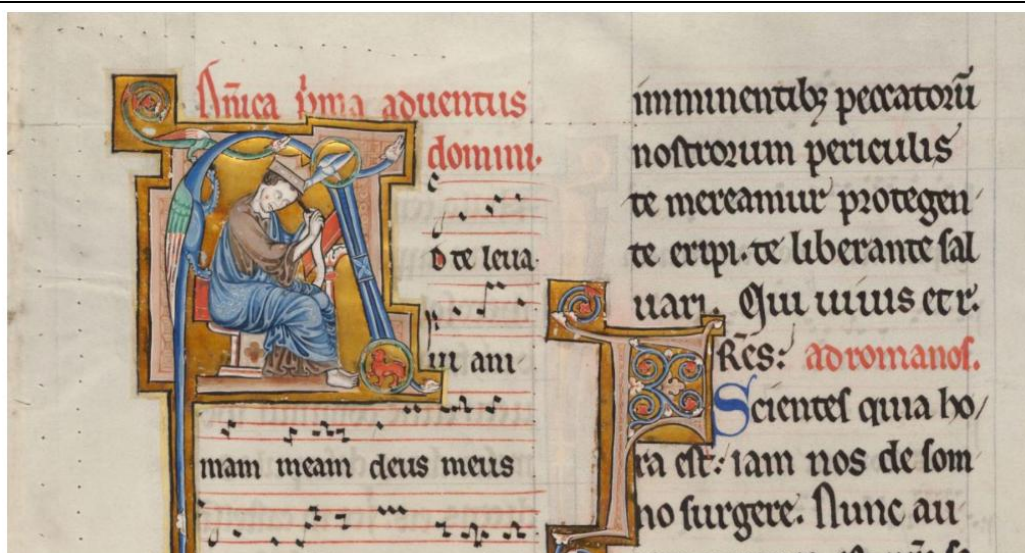 Dñica p̃ma aduentus
domini·
AD te leua·
ui ani
mam meam deus meus
imminentibꝫ peccatorũ
nostrorum periculis
te mereamur protegen
te eripi· te liberante sal
uari. Qui uiuis et r̃.
FRẽS: ad romanos.
Scientes quia ho/
ra est: iam nos de som
no surgere. Nunc au